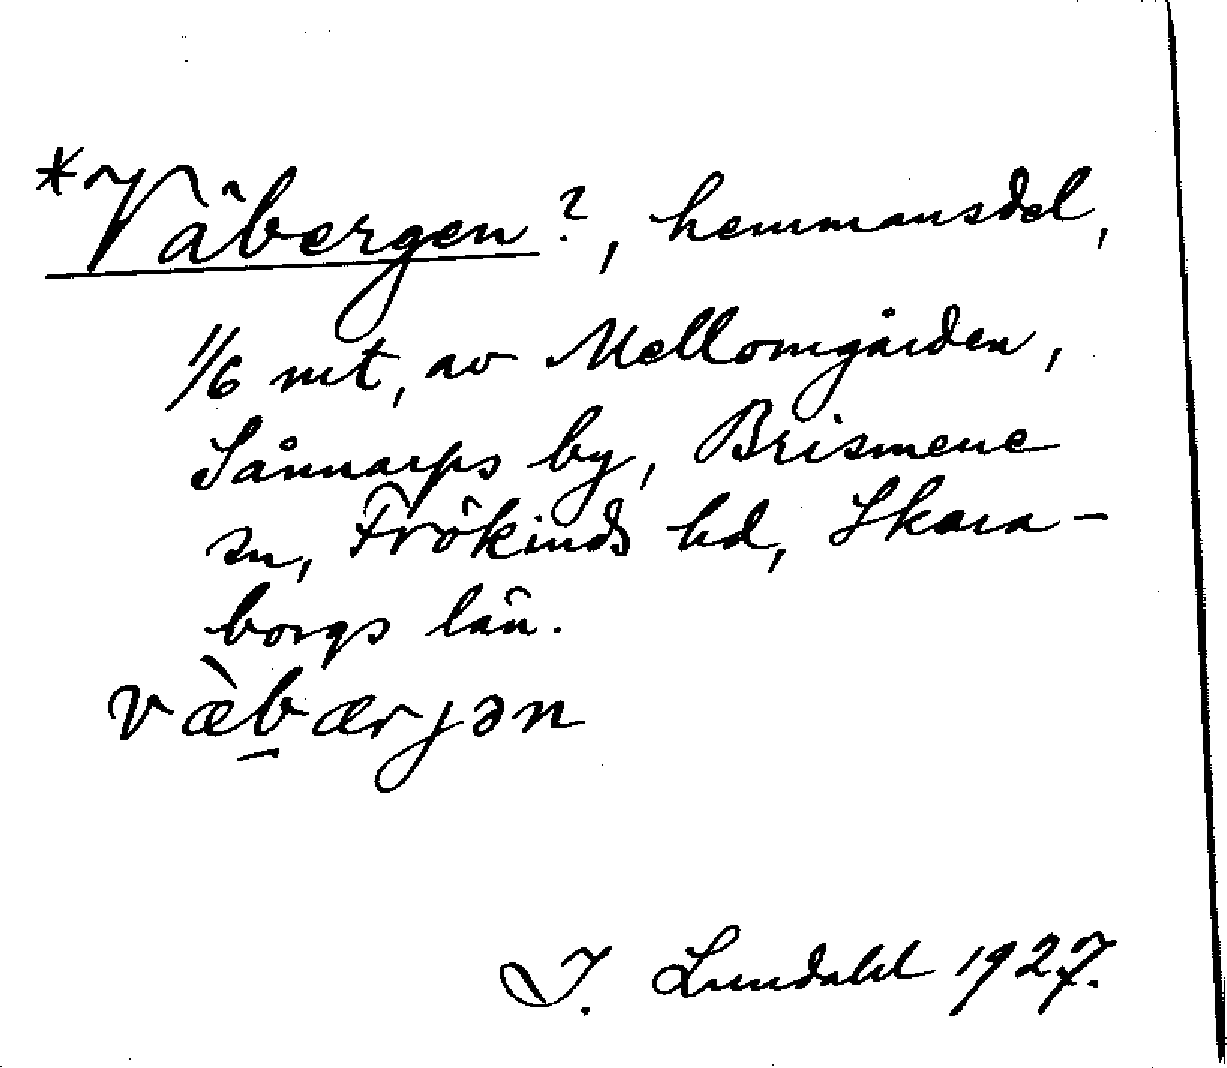 *Väbergen?, hemmansdel,
1/6 mt, av Mellomgården,
Sännarps by, Brismene
sn, Frökinds hd, Skara-
borgs län.
væ̀b̲ærjən
I. Lundahl 1927.